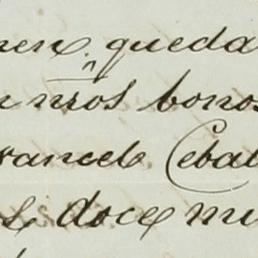 nen, queda
nr̃os bonos
rancels Cebal
s, doce mi